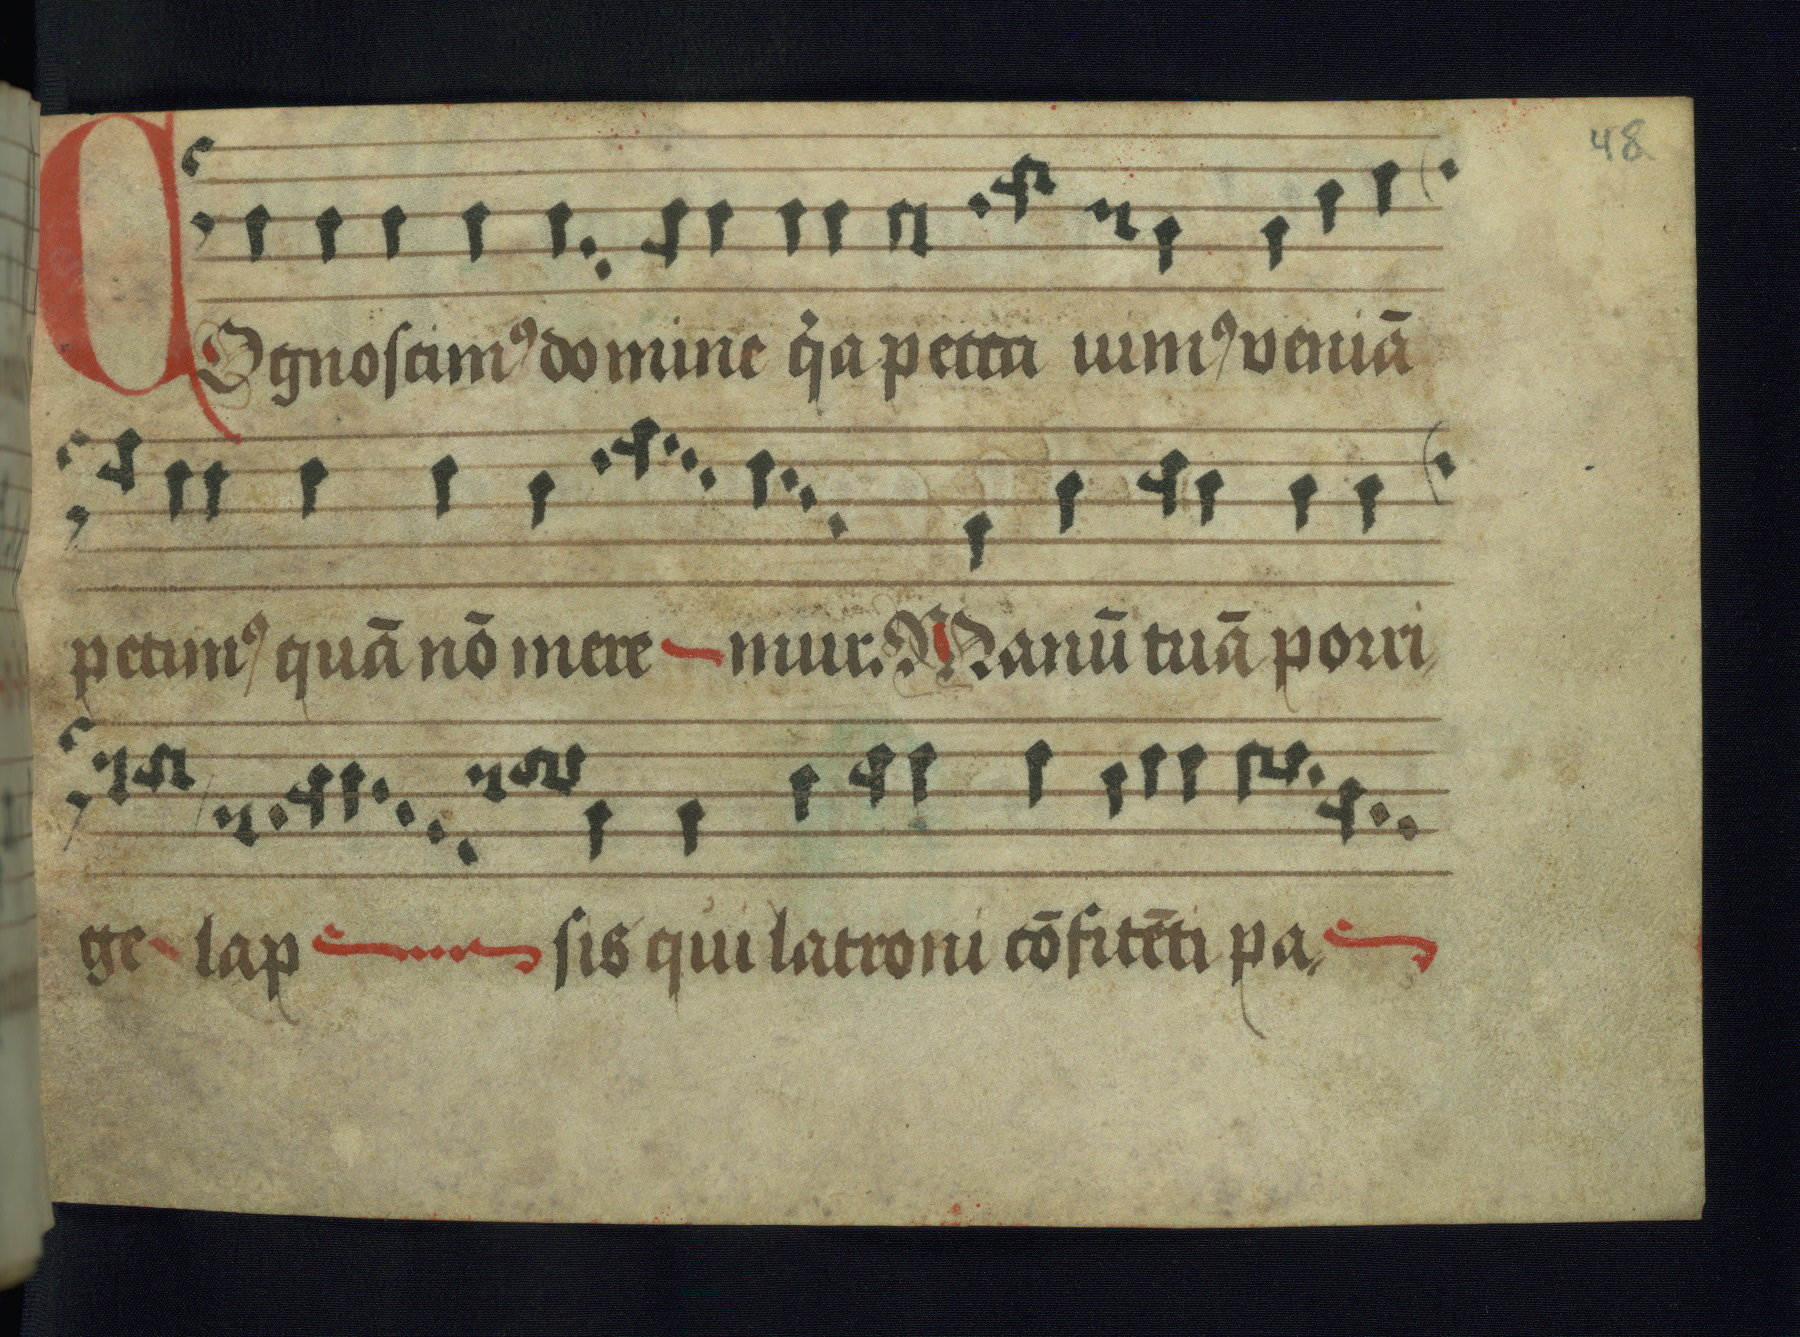 48
COgnoscimꝰ domine q̇a pecca uimꝰ veniā
petimꝰ quā nō mere mur. Manū tuā porri
ge lap sis qui latroni cōfitēti pa